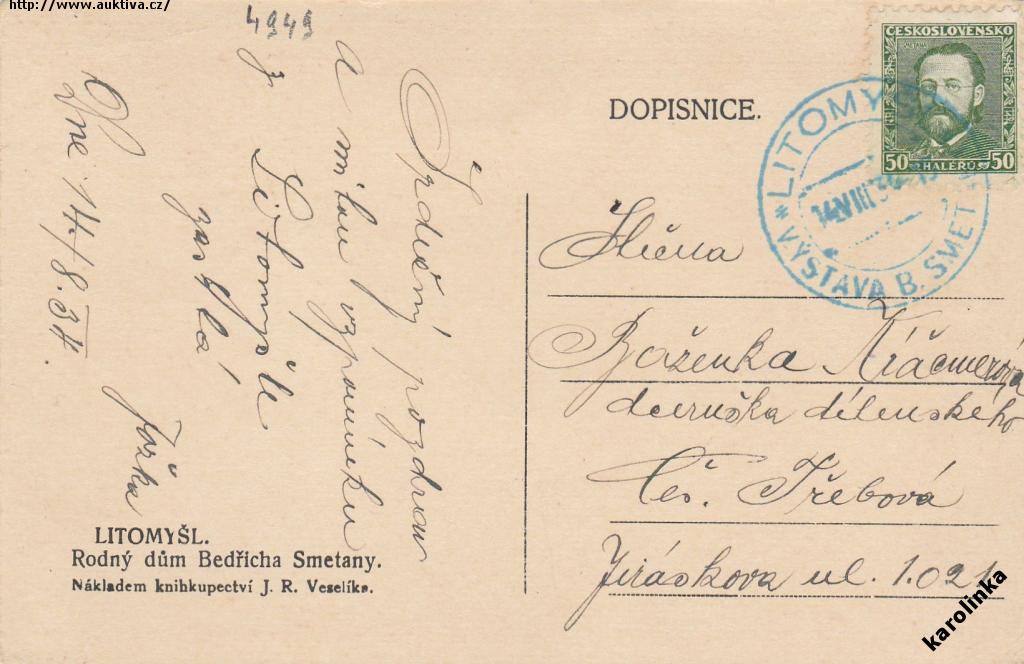 http://www.auktiva.cz/
4949
Srdečný pozdrav
a milou vzpomínku
z Litomyšle
zasílá
Dne 14./8.34.
DOPISNICE.
ČESKOSLOVENSKO
SMETANA
50 HALÉŘŮ 50
LITOMYŠL
14 VIII 34
VÝSTAVA B. SMET
Slečna
Boženka
dceruška dílenského
Čes. Třebová
Jiráskova ul. 1.021
LITOMYŠL.
Rodný dům Bedřicha Smetany.
Nákladem knihkupectví J. R. Veselíka.
karolinka